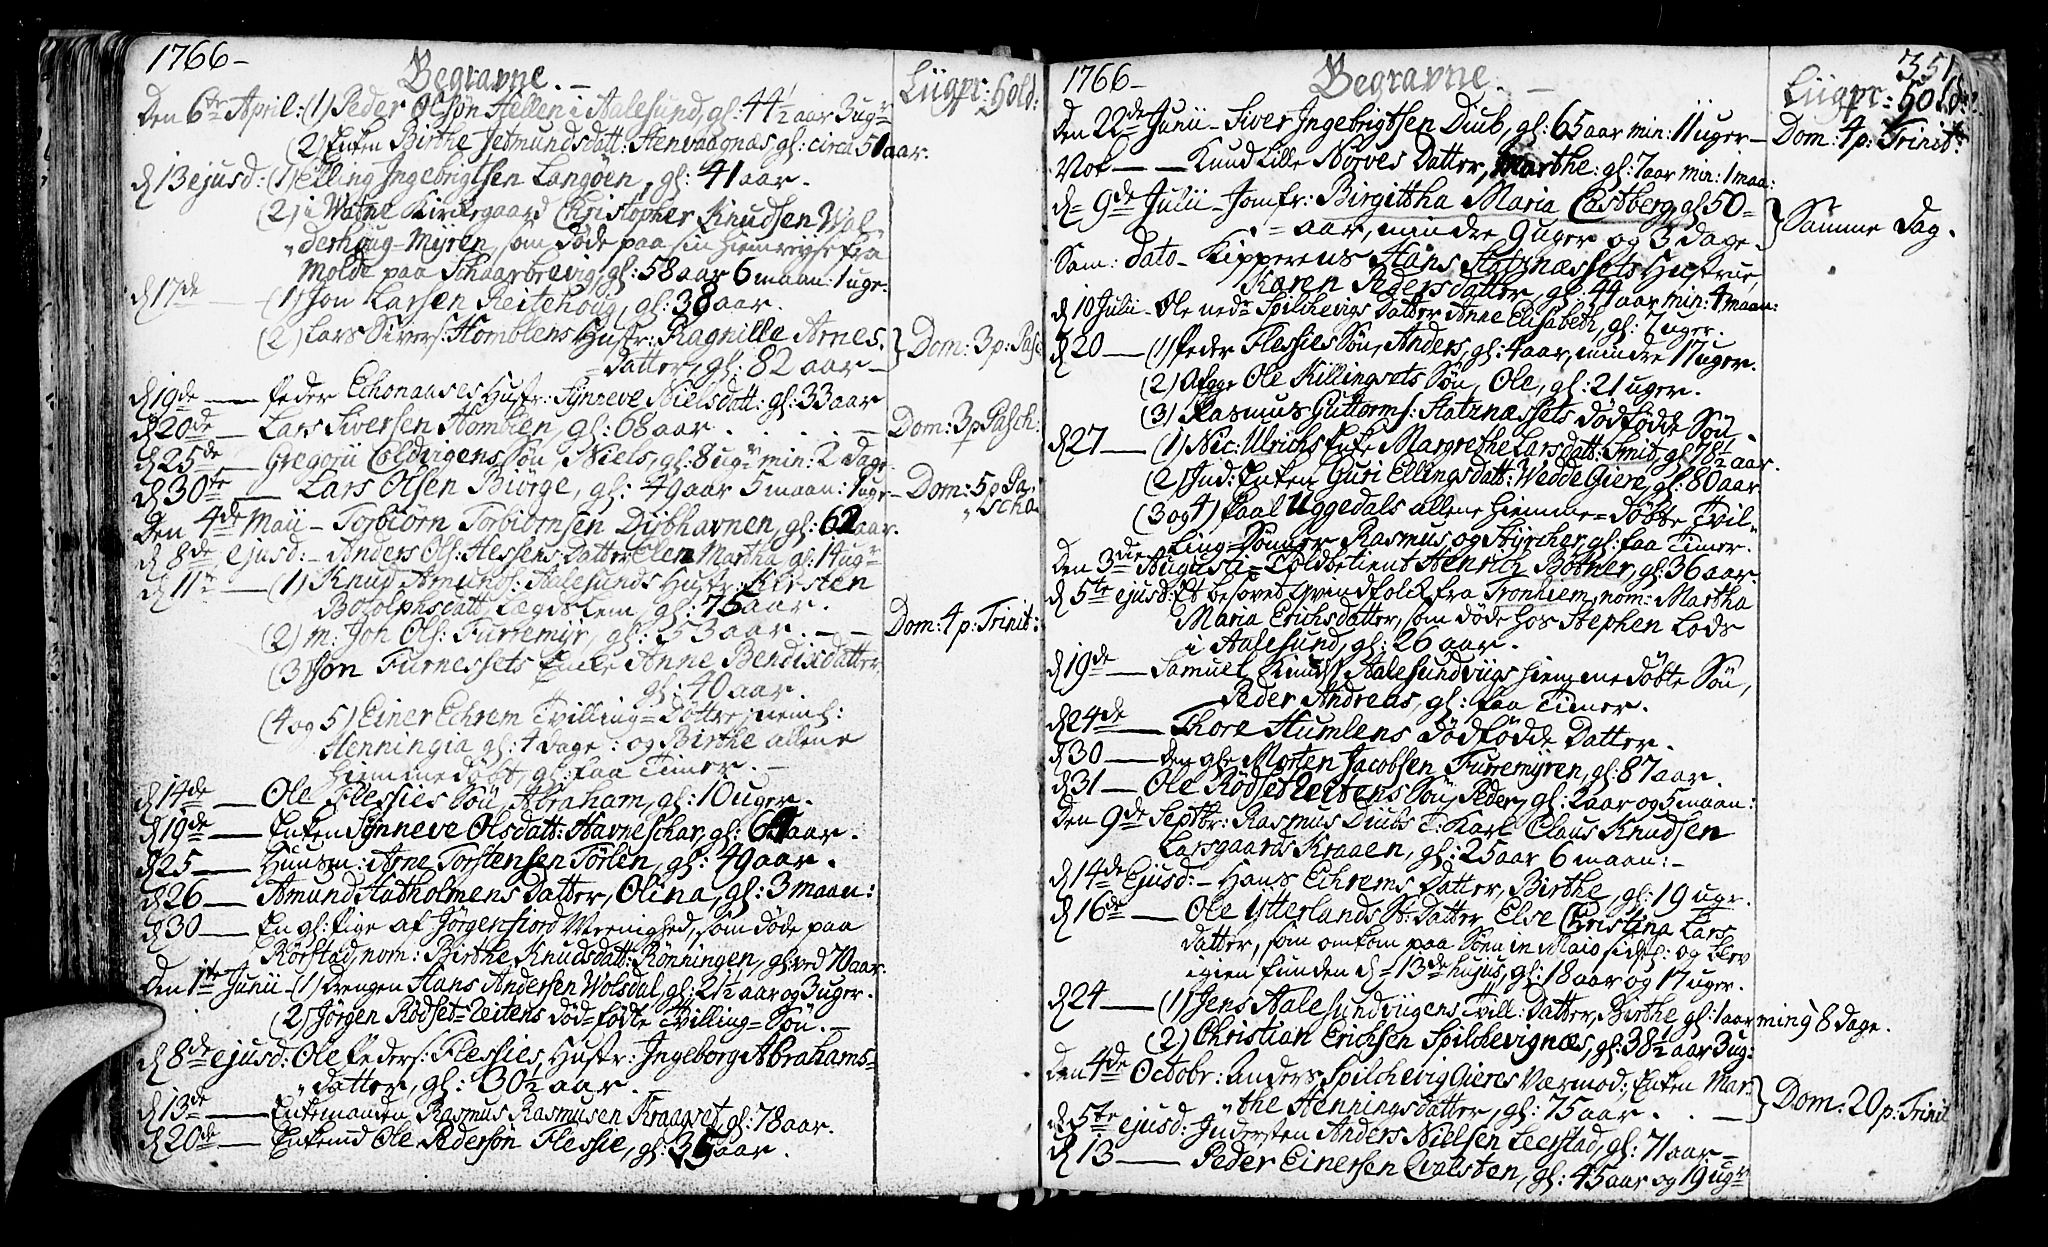 1766-
Begravne.-
Liigpr: hold:
Den 6te April: (1) Peder Olsøn Hellen i Aalesund, gl: 44½ aar 3 ugr
(2) Enken Birthe Jetmundsdatt: Stenvaagnæs gl: circa 51 aar.
d 13 ejusd: (1) Elling Ingebrigtsen Langøen, gl: 41 aar.
(2) i Watne Kirkegaard Christopher Knudsen Wol-
derhoug-Myren, som døde paa sin Hiemreyse fra
Molde paa Schaarbrevig, gl: 58 aar 6 maan: 1 uge.
d 17de — (1) Jon Larsen Reitehoug, gl: 38 aar.
(2) Lars Sivers: Homblens Hustr: Ragnille Arnes-
datter, gl: 82 aar -
Dom: 3 p: Pasc
d 19de — Peder Echonaases Hustr: Synneve Nielsdatt: gl: 33 aar
d 20de — Lars Siversen Homblen, gl: 68 aar . . . . . —
Dom: 3 p Pasch:
d 25de — Gregorii Coldvigens Søn, Niels, gl: 8 ugr min: 2 dage
d 30te — Lars Olsen Biørge, gl: 49 aar 5 maan: 1 uge -
Dom: 5 p Pa-
scha
Den 4de Maii - Torbiörn Torbiörnsen Dybhavnen, gl: 62 aar.
d 8de ejusd: - Anders Ols: Hessens Datter Elen Martha gl: 14 ugr
d 11te — (1) Knud Amunds: Aalesunds Hustr: Kirsten
Botolphsdatt Lægdslem, gl: 75 aar.
(2) m: Jon Ols: Furremyr, gl: 53 aar. — —
Dom: 4 p: Trinit:
(3) Jon Furnessets Enke Anne Bendixdatter
gl: 40 aar.
(4 og 5) Einer Echrem Tvilling-Døttre, neml:
Henningia gl: 4 dage: og Birthe allene
hiemmedøbt, gl: faa Timer. -
d 14de — Ole Flessies Søn, Abraham, gl: 10 uger.
d 19de — Enken Synneve Olsdatt: Havneschar, gl: 64 aar.
d 25 — Huusm: Arne Torstensen Törlen, gl: 49 aar.
d 26 — Amund Hatholmens Datter, Olina, gl: 3 maan:
d 30 — En gl: Pige af Jørgenfiord Meenighed, som døde paa
Rörstad, nom: Birthe Knudsdatt: Rönningen, gl: ved 70 aar.
Den 1te Junii - (1) Drengen Hans Andersen Wolsdal, gl: 21½ aar og 3 uger.
(2) Jörgen Rödset-Reitens død-födte Tvilling-Søn. -
d 8de ejusd: Ole Peders: Flessies, Hustr: Ingeborg Abrahams-
datter, gl: 30½ aar. -
d 13de — Enkemanden Rasmus Rasmusen Kraagset, gl: 78 aar.
d 20de — Enkemd Ole Pedersøn Flessie, gl: 35 aar.
1766-
Begravne. -
351.
Liigpr: hold:
Den 22de Junii - Siver Ingebrigtsen Dub, gl: 65 aar min: 11 uger -
Dom: 4 p: Trinit:
Not — Knud Lille Nørves Datter, Marthe: gl: 7 aar min: 1 maa:
d 9de Julii - Jomfr: Birgittha Maria Castberg, gl 50-
aar, mindre 9 uger og 3 dage.
Samme Dag.
Sam: dato - Kipperens Hans Statznæssets Hustrue,
Karen Pedersdatter, gl: 44 aar min: 4 maan:
d 10 Julii - Ole nedr Spilchevigs Datter Anne Elisabeth, gl: 7 uger.
d 20 — (1) Peder Flessies Søn, Anders, gl: 4 aar, mindre 17 uger.
(2) Ole Killingsets Søn, Ole, gl: 21 uger.
(3) Rasmus Guttorms: Statznæssets dødfödde Søn.
d 27 — (1) Nic: Ulrichs Enke Margrethe Larsdatt: Smit, gl 78½ aar.
(2) Ind: Enken Guri Ellingsdatt: Wedde Giere, gl: 80 aar
(3 og 4) Paal Uggedals allene hiemme-døbte Tvil-
ling-Sønner Rasmus og Styrcher, gl: faa Timer.
Den 3die Augusti - Toldbetient Henrich Botner, gl: 36 aar.
d 5te ejusd: Et besovet Qvindfolck fra Tronhiem, nom: Martha
Maria Erichsdatter, som døde hos Stephen Lods
i Aalesund, gl: 26 aar.
d 19de — Samuel Knuds Aalesundviigs hiemmedøbte Søn,
Peder Andreas, gl: faa Timer.
d 24de — Thore Humlens dödfödde Datter.
d 30 — den gle Morten Jacobsen Furremyren, gl: 87 aar.
d 31 — Ole Rödset Reitens Søn, Peder, gl: 2 aar og 5 maan:
Den 9de Septbr: Rasmus Duubs T: Karl Claus Knudsen
Larsgaards Kraaen, gl: 25 aar 6 maan: -
d 14de Ejusd: - Hans Echrems Datter, Birthe, gl: 19 ugr.
d 16de — Ole Ytterlands St: Datter Else Christina Lars
datter, som omkom paa Søen in Maio sidstl: og blev
igien funden d 13de hujus, gl: 18 aar og 17 uger.
d 24 — (1) Jens Aalesundviigens Tvill: Datter, Birthe gl: 1 aar ming 8 dage.
(2) Christian Erichsen Spilchevignæs, gl: 38½ aar 3 ug:
Den 4de Octobr: Anders Spilchevig Gieres Værmod: Enken Mar-
the Henningsdatter, gl: 75 aar . . . —
Dom: 20 p: Trinit
d 5te ejusd: Indersten Anders Nielsen Leerstad, gl: 71 aar -
d 13 — Peder Einersen Qvalsten, gl: 45 aar og 19 ugr